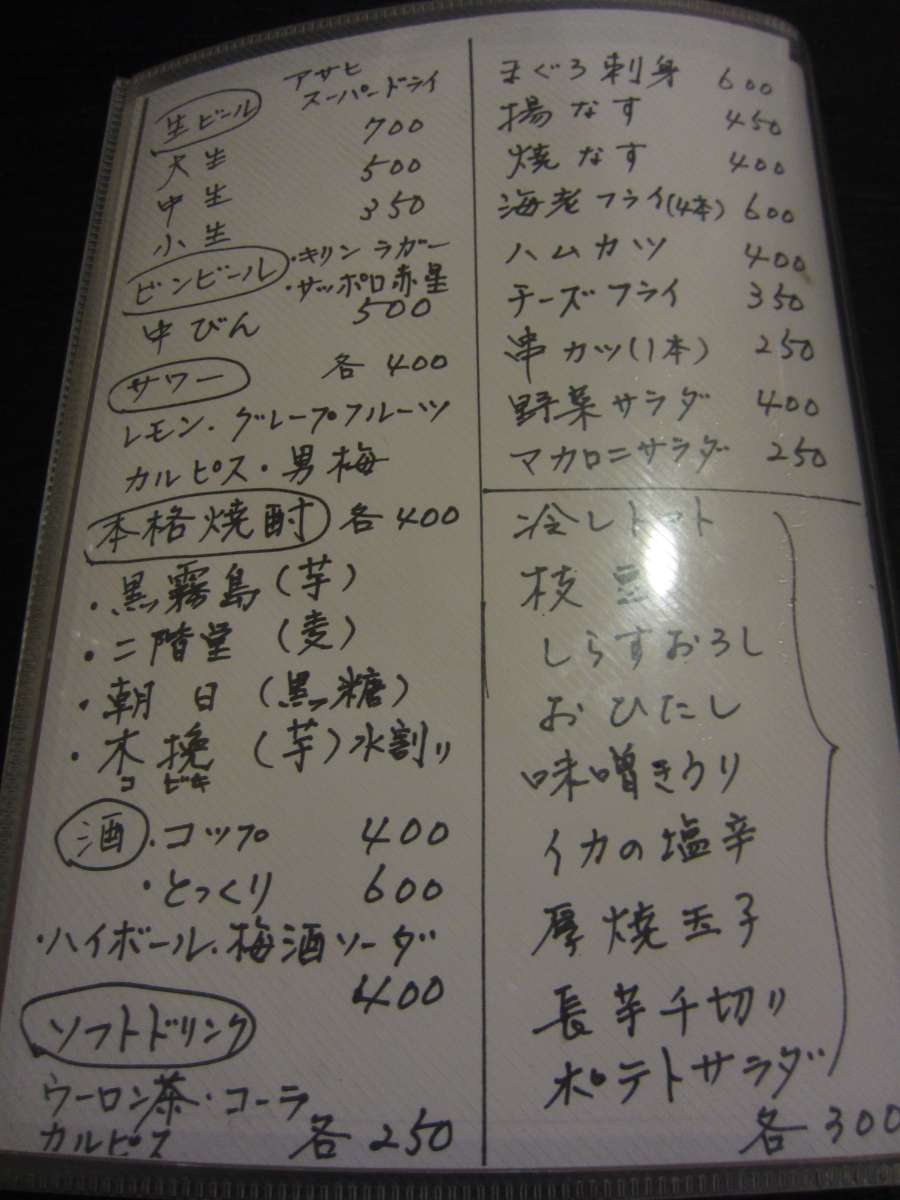 生ビール アサヒ
スーパードライ
大生 700
中生 500
小生 350
ビンビール ・キリン ラガー
・サッポロ赤星
中びん 500
サワー 各400
レモン・グレープフルーツ
カルピス・男梅
本格焼酎 各400
・黒霧島(芋)
・二階堂(麦)
・朝日(黒糖)
・木挽(芋)水割り
コビキ
酒 ・コップ 400
・とっくり 600
・ハイボール・梅酒ソーダ
400
ソフトドリンク
ウーロン茶・コーラ
カルピス 各250
まぐろ刺身 600
揚なす 450
焼なす 400
海老フライ(4本) 600
ハムカツ 400
チーズフライ 350
串カツ(1本) 250
野菜サラダ 400
マカロニサラダ 250
冷しトマト
枝豆
しらすおろし
おひたし
味噌きゅうり
イカの塩辛
厚焼玉子
長芋千切り
ポテトサラダ
各300